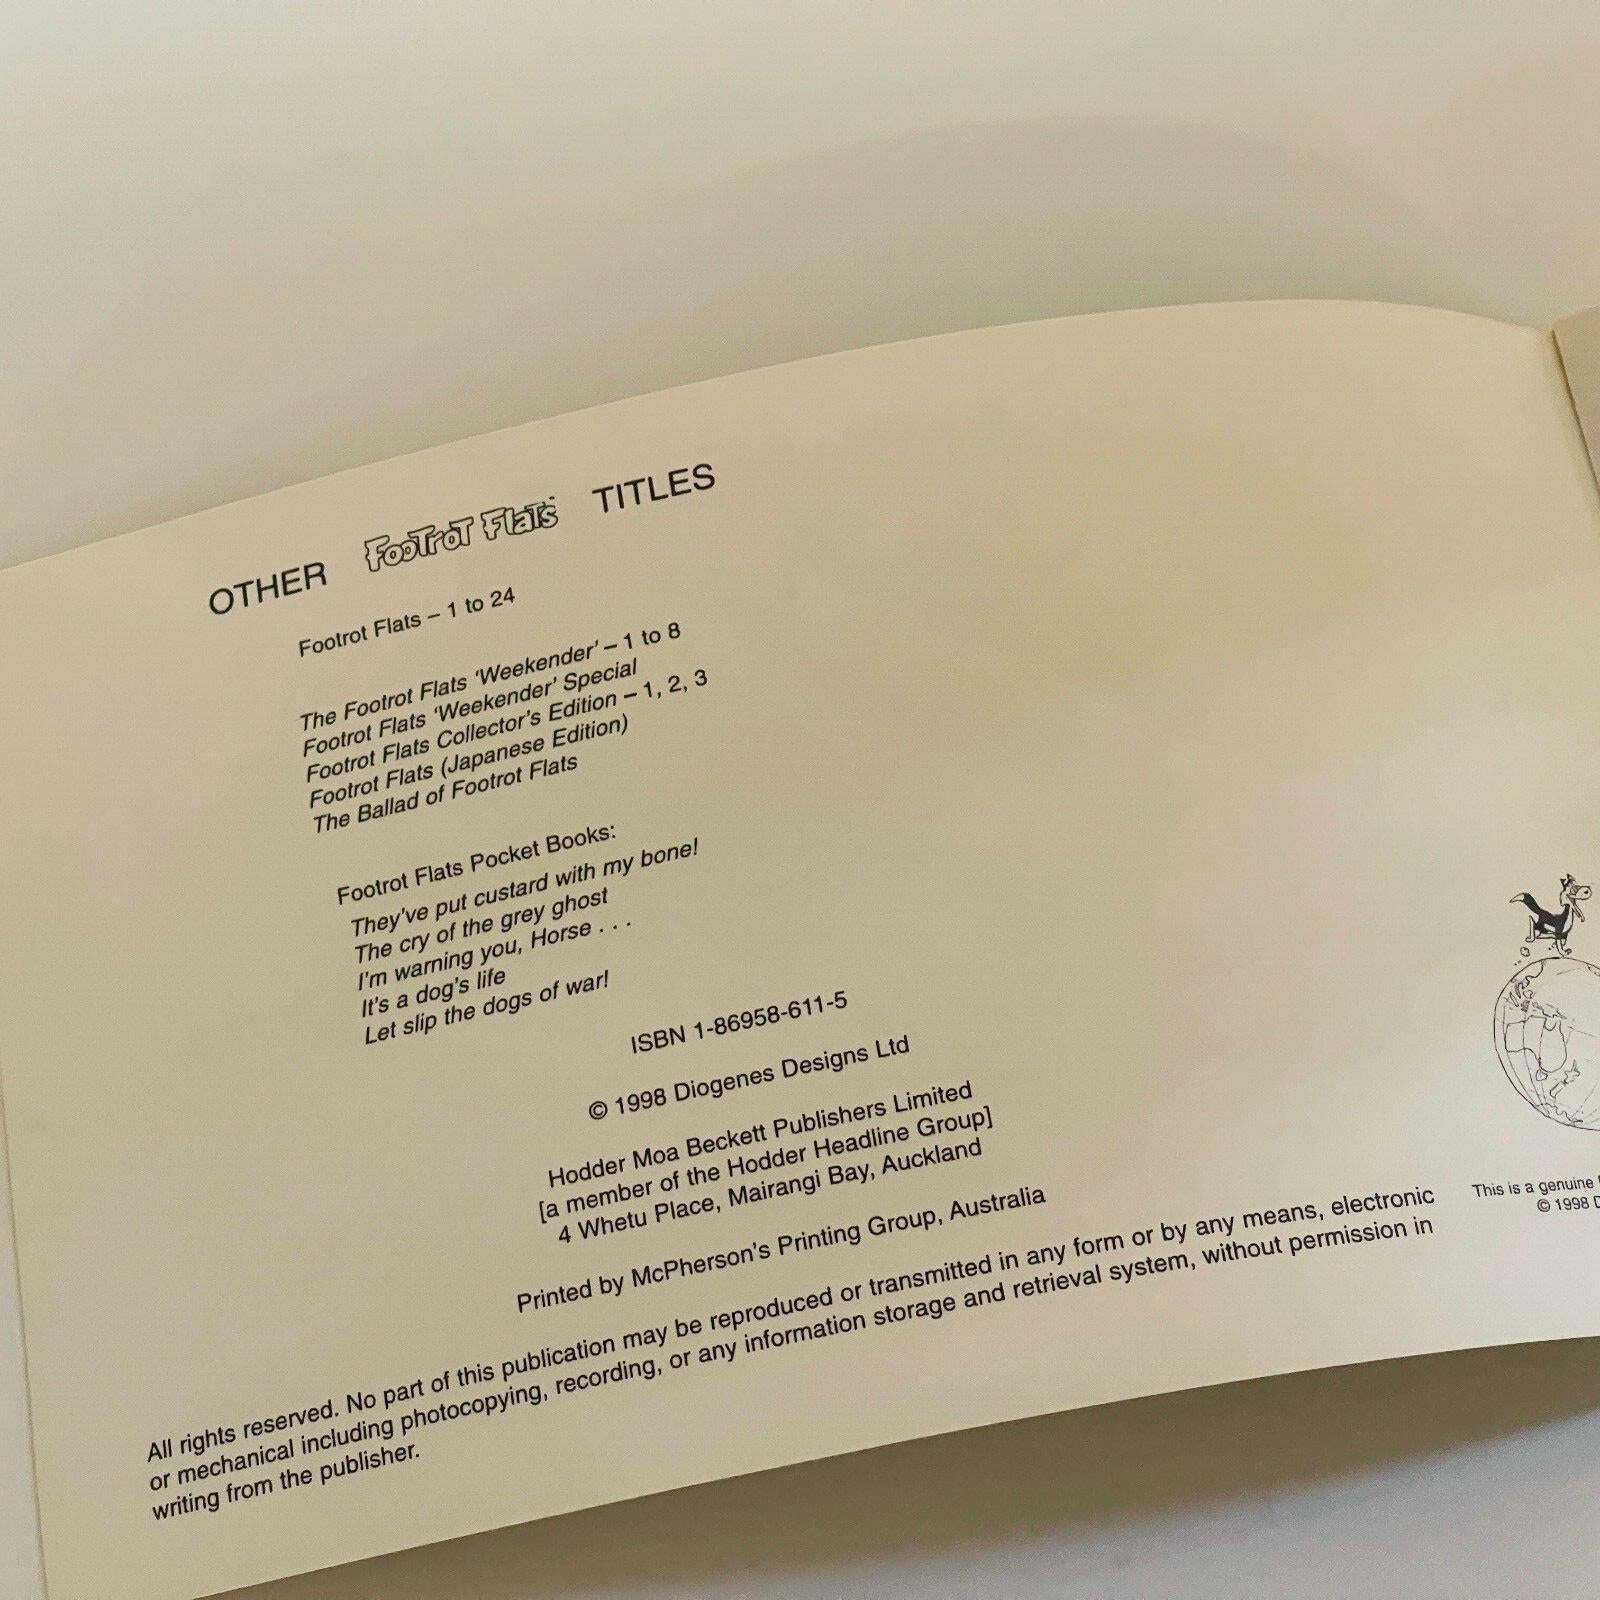 OTHER FooTroT FlaTs TITLES
Footrot Flats – 1 to 24
The Footrot Flats ‘Weekender’ – 1 to 8
Footrot Flats ‘Weekender’ Special
Footrot Flats Collector’s Edition – 1, 2, 3
Footrot Flats (Japanese Edition)
The Ballad of Footrot Flats
Footrot Flats Pocket Books:
They’ve put custard with my bone!
The cry of the grey ghost
I’m warning you, Horse . . .
It’s a dog’s life
Let slip the dogs of war!
ISBN 1-86958-611-5
© 1998 Diogenes Designs Ltd
Hodder Moa Beckett Publishers Limited
[a member of the Hodder Headline Group]
4 Whetu Place, Mairangi Bay, Auckland
Printed by McPherson’s Printing Group, Australia
All rights reserved. No part of this publication may be reproduced or transmitted in any form or by any means, electronic
or mechanical including photocopying, recording, or any information storage and retrieval system, without permission in
writing from the publisher.
This is a genuine
© 1998